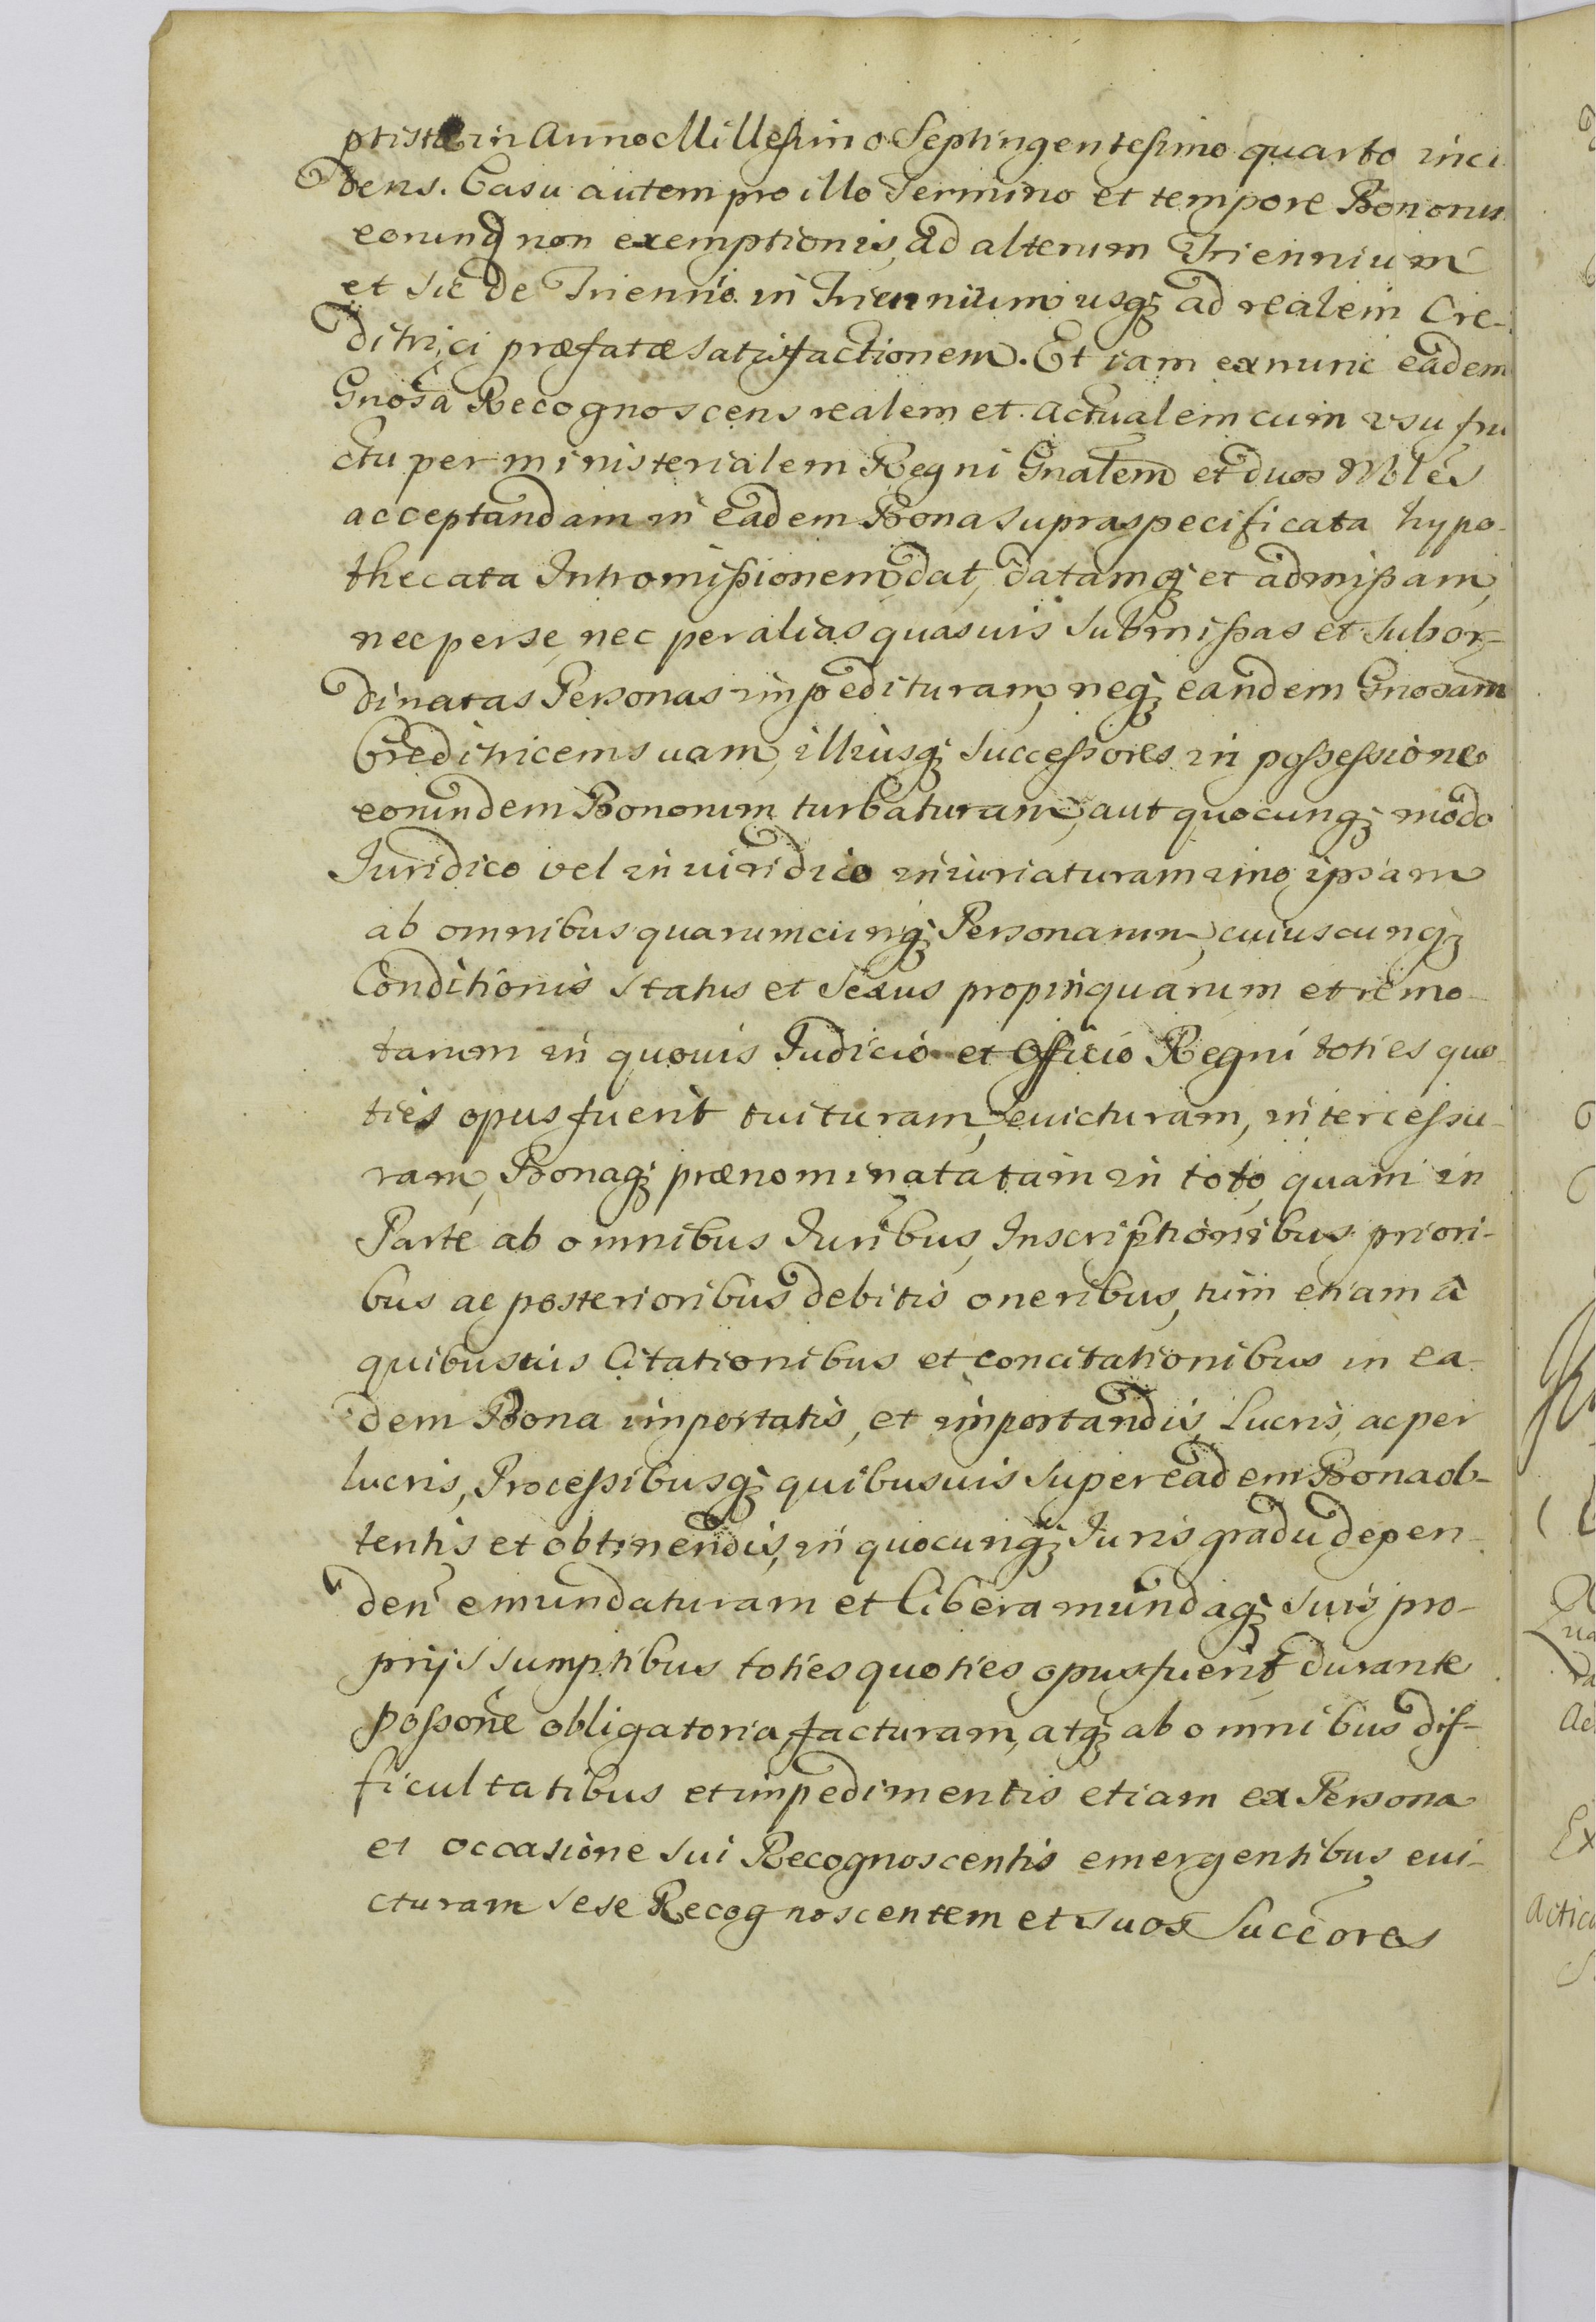 ptistæ in Anno Millesimo Septingentesimo quarto inci
dens. Casu autem pro illo Termino et tempore Bonorum
eorunq non exemptionis, ad alterum Triennium
et sic de Triennio in Triennium usq3 ad realem Cre-
ditrici præfatæ satisfactionem. Et iam ex nunc eadem
Gnosa Recognoscens realem et actualem cum usu fru
ctu per ministerialem Regni Gnalem et duos Nbles
acceptandam in eadem Bona supraspecificata hypo-
thecata Intromißionem dat, datamq3 et admißam,
nec per se, nec per alias quasuis submißas et subor-
dinatas Personas impedituram, neq3 eandem Gnosam
Creditricem suam, illiusq3 Successores in possessione
eorundem Bonorum turbaturam, aut quocunq3 modo
Juridico vel iniuridico iniuriaturam imo ipsam
ab omnibus quarumcunq3 Personarum, cuiuscunq3
Conditionis status et Sexus propinquarum et remo-
tarum in quouis Judicio et Officio Regni toties quo-
ties opus fuerit tuituram, euicturam, intercessu-
ram, Bonaq3 prænominata tam in toto quam in
Parte ab omnibus Juribus, Inscriptionibus priori-
bus ac posterioribus debitis oneribus, tum etiam à
quibusuis Citationibus et concitationibus in ea-
dem Bona importatis, et importandis, Lucris, ac per
lucris, Processibusq3 quibusuis super eadem Bona ob-
tentis et obtinendis, in quocunq3 Juris gradu depen-
den emundaturam et libera mundaq3 suis pro-
prijs sumptibus toties quoties opus fuerit, durante
possone obligatoria, facturam, atq3 ab omnibus dif-
ficultatibus et impedimentis etiam ex Persona
et occasione sui Recognoscentis emergentibus eui-
cturam sese Recognoscentem et suos Succores